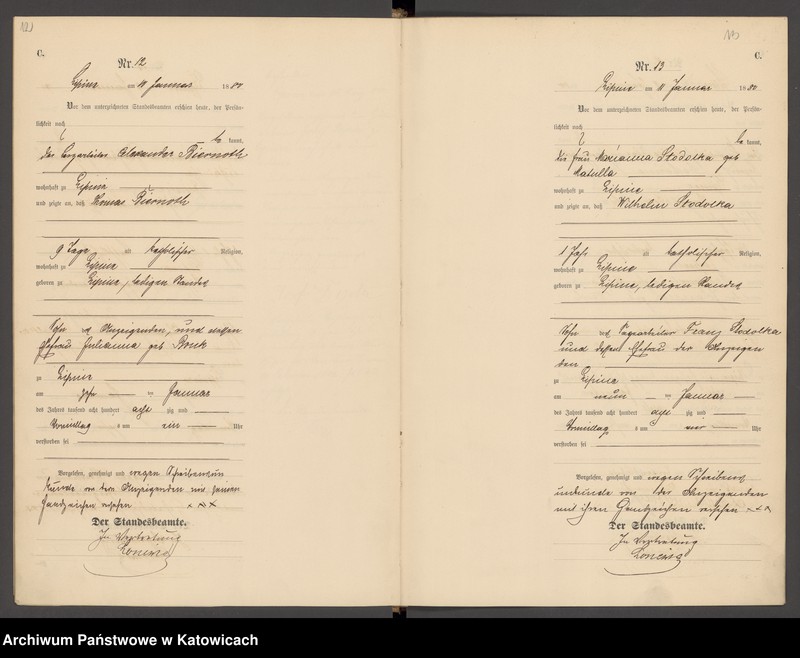 C.
Nr. 12
Lipine am 11 Januar 1880
Vor dem unterzeichneten Standesbeamten erschien heute, der Persön-
lichkeit nach
be kannt,
der Bergarbeiter Alexander Biernoth
wohnhaft zu Lipine
und zeigte an, daß Thomas Biernoth
9 Tage alt katholischer Religion,
wohnhaft zu Lipine
geboren zu Lipine, ledigen Standes
Sohn des Anzeigenden, und dessen
Ehefrau Julianna geb
zu Lipine
am zehn ten Januar
des Jahres tausend acht hundert acht zig und
Vormittag s um vier Uhr
verstorben sei
Vorgelesen, genehmigt und wegen Schreibensun
kunde von dem Anzeigenden mit seinem
Handzeichen versehen xxx
Der Standesbeamte.
In Vertretung
C.
Nr. 13
Lipine am 11 Januar 1880
Vor dem unterzeichneten Standesbeamten erschien heute, der Persön-
lichkeit nach
be kannt,
die Frau Marianna Skodolka geb
Matulla
wohnhaft zu Lipine
und zeigte an, daß Wilhelm Skodolka
1 Jahr alt katholischer Religion,
wohnhaft zu Lipine
geboren zu Lipine, ledigen Standes
Sohn des Tagearbeiter Franz Skodolka
und dessen Ehefrau der Anzeigen
den
zu Lipine
am neun ten Januar
des Jahres tausend acht hundert acht zig und
Vormittag s um vier Uhr
verstorben sei
Vorgelesen, genehmigt und wegen Schreibens
unkunde von der Anzeigenden
mit ihrem Handzeichen versehen xxx
Der Standesbeamte.
In Vertretung
Archiwum Państwowe w Katowicach